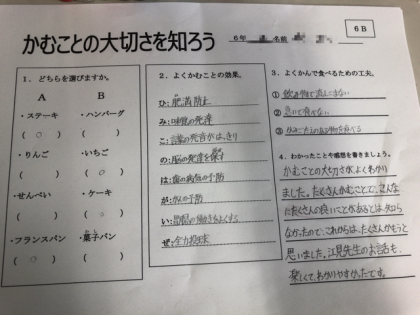 かむことの大切さを知ろう
6年 名前
6B
1. どちらを選びますか。
A B
・ステーキ ・ハンバーグ
(○) ( )
・りんご ・いちご
( ) (○)
・せんべい ・ケーキ
( ) (○)
・フランスパン ・菓子パン
(○) ( )
2. よくかむことの効果。
ひ:肥満防止
み:味覚の発達
こ:言葉の発音がはっきり
の:脳の発達を
は:歯の病気の予防
が:がんの予防
い:胃腸の働きをよくする
ぜ:全力投球
3. よくかんで食べるための工夫。
① 飲み物で流しこまない
② 急いで食べない
③ かみごたえのある物を食べる
4. わかったことや感想を書きましょう。
かむことの大切さがよくわかり
ました。たくさんかむことで、こんな
にたくさんの良いことがあるとは、知ら
なかったので、これからは、たくさんかもうと
思いました。江見先生のお話も、
楽しくて、わかりやすかったです。